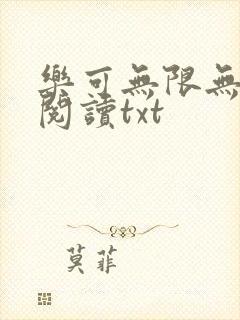 樂可無限無
閱讀txt
莫菲